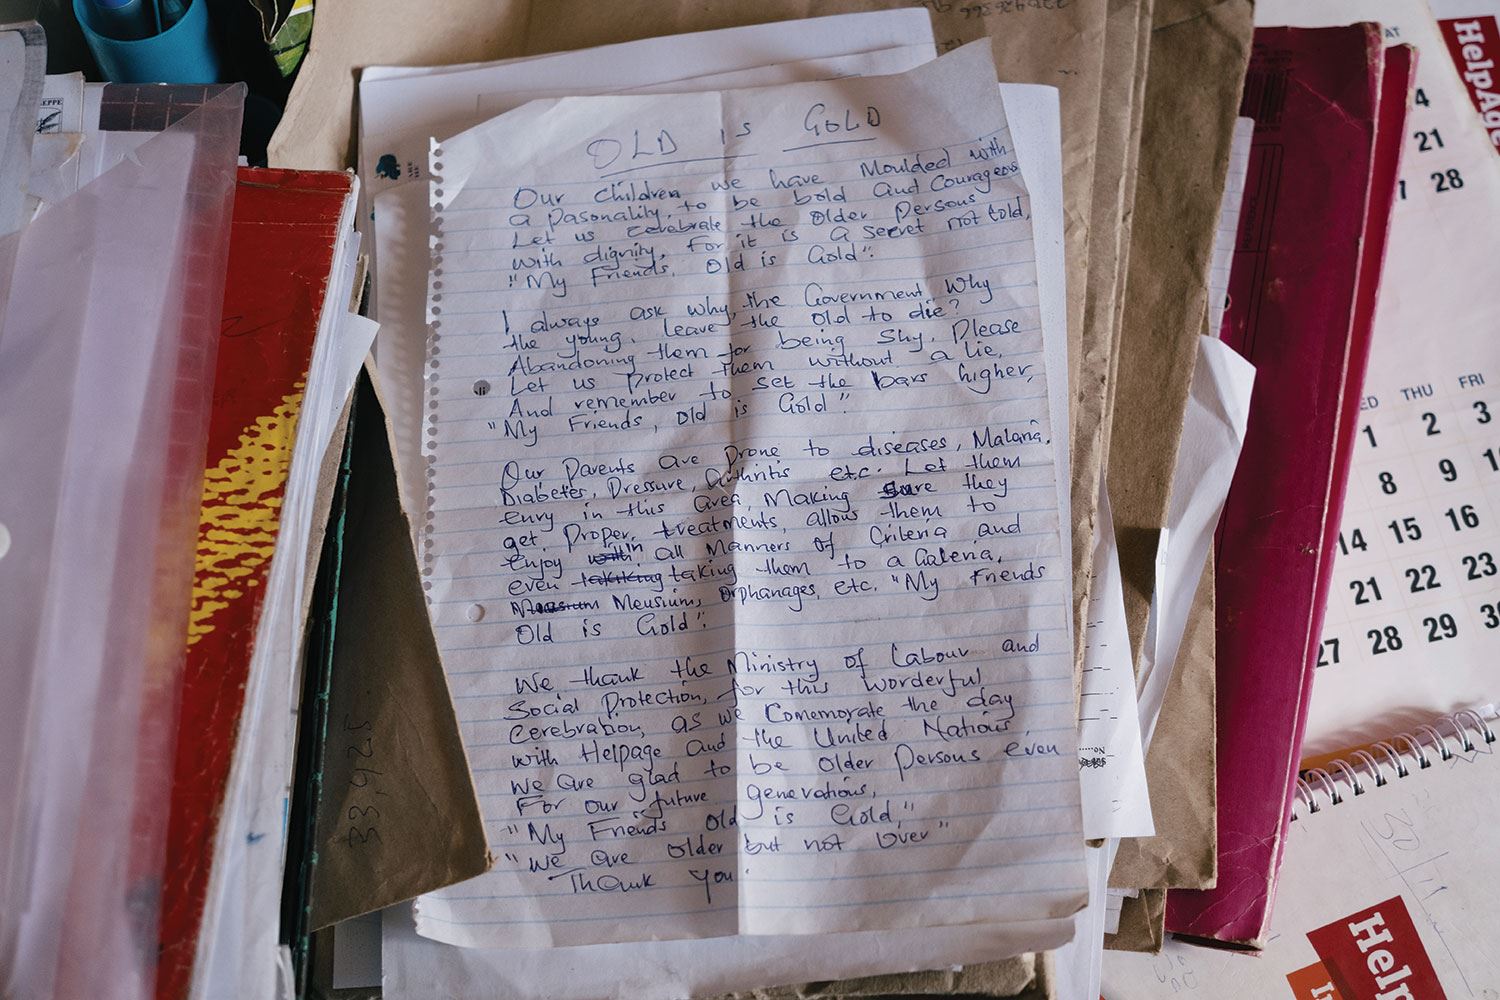 OLD is GOLD
Our children, we have Moulded with
a Pasonality, to be bold and Courageous
Let us cerebrate the Older Persons
with dignity, for it is a secret not told,
"My Friends, Old is Gold".
I always ask why, the Government, Why
the young, Leave the Old to die?
Abandoning them for being Shy, Please
Let us Protect Them without a lie,
And remember to set the bars higher,
"My Friends, Old is Gold".
Our Parents are Prone to diseases, Malaria,
Diabetes, Pressure, Arthritis etc. Let them
envy in this Area, Making sure they
get Proper, treatments, allow them to
enjoy in all Manners of Criteria and
even taking them to a Galeria,
Meusium, Orphanages, etc. "My Friends
Old is Gold".
We thank the Ministry of Labour and
Social Protection, for this worderful
Cerebration, as we Comemorate the day
with Helpage and the United Nations,
We are glad to be Older Persons even
For our future generations,
"My Friends Old is Gold,"
"We are older but not over"
Thank you.
33,925
HelpAge
AT
4
21
28
ED THU FRI
1 2 3
8 9 1
14 15 16
21 22 23
27 28 29 30
Hel